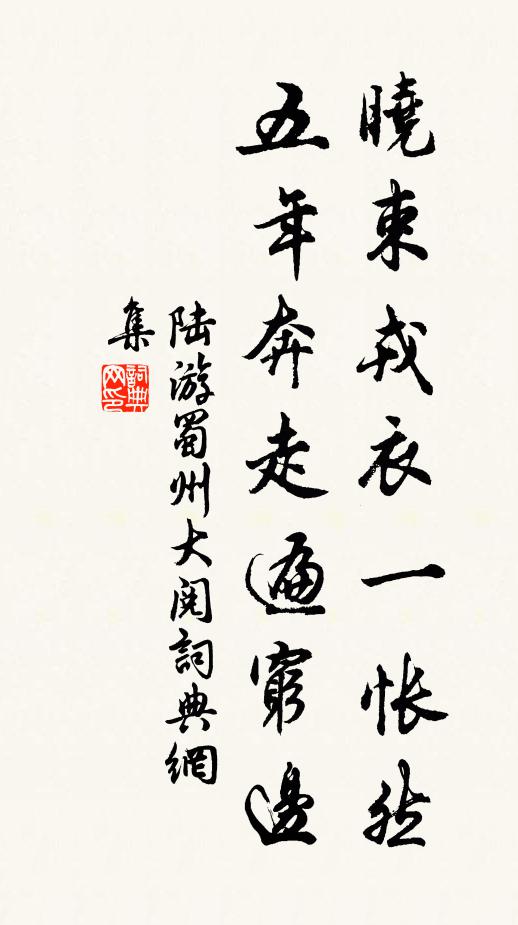 曉束戎衣一悵然
五年奔走遍窮邊
陸游蜀州大閱詞典網
集
詞典
网印